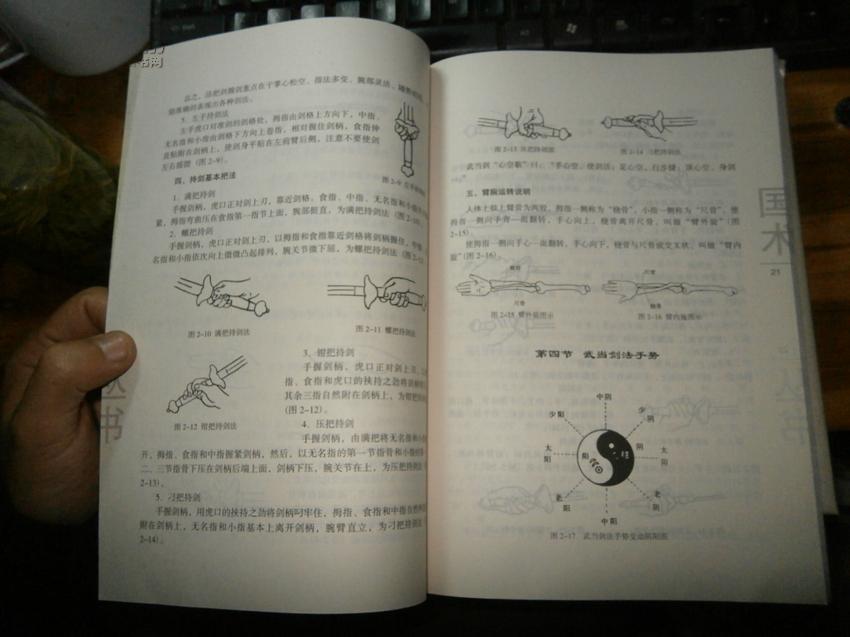 总之，活把剑握剑重点在于掌心松空、指法多变、腕部灵活、
能准确剑表现出各种剑法。
5. 左手持剑法
左手虎口对准剑的剑格处，拇指由剑格上方向下，中指、
无名指和小指由剑格下方向上卷指，相对握住剑柄，食指伸
直贴附在剑柄上，使剑身平贴在左前臂后侧，注意不要使剑
左右摇摆（图 2-9）。
四、持剑基本把法
1. 满把持剑
手握剑柄，虎口正对剑上刃，靠近剑格。食指、中指、无名指和小指
紧，拇指弯曲压在食指第一指节上面，腕部挺直，为满把持剑法（图 2-10）
2. 螺把持剑
手握剑柄，虎口正对剑上刃，以拇指和食指靠近剑格将剑柄握住，中指、
名指和小指依次向上微微凸起排列，腕关节微下屈，为螺把持剑法（图 2-11）
图 2-10 满把持剑法
图 2-11 螺把持剑法
3. 钳把持剑
手握剑柄，虎口正对剑上刃，
指、食指和虎口的挟持之劲将剑柄
其余三指自然附在剑柄上，为钳把持
（图 2-12）。
图 2-12 钳把持剑法
4. 压把持剑
手握剑柄，由满把将无名指和小
开，拇指、食指和中指握紧剑柄，然后，以无名指的第一节指骨和小指的第
二、三节指骨下压在剑柄后端上面，剑柄下压，腕关节在上，为压把持剑法
2-13）。
5. 刁把持剑
手握剑柄，用虎口的挟持之劲将剑柄叼牢住，拇指、食指和中指自然
附在剑柄上，无名指和小指基本上离开剑柄，腕臂直立，为刁把持剑法
2-14）。
丛书
图 2-13 压把持剑法
图 2-14 刁把持剑法
武当剑“心空歌”曰：“手心空，使剑活；足心空，行步捷；顶心空，身剑
五、臂腕运转说明
人体上肢上臂骨为两根，拇指一侧称为“桡骨”，小指一侧称为“尺骨”。使
拇指一侧向手背一面翻转，手心向上，桡骨离开尺骨，叫做
2-15）。
使拇指一侧向手心一面翻转，手心向下，桡骨与尺骨成交叉状，叫做“臂内
旋”（图 2-16）。
桡骨
尺骨
尺骨
桡骨
图 2-15 臂外旋图示
图 2-16 臂内旋图示
国术
21
第四节 武当剑法手势
中阴
少阳
少阴
太阳
阳
阴
太阴
老阳
老阴
中阳
图 2-17 武当剑法手势变动阴阳图